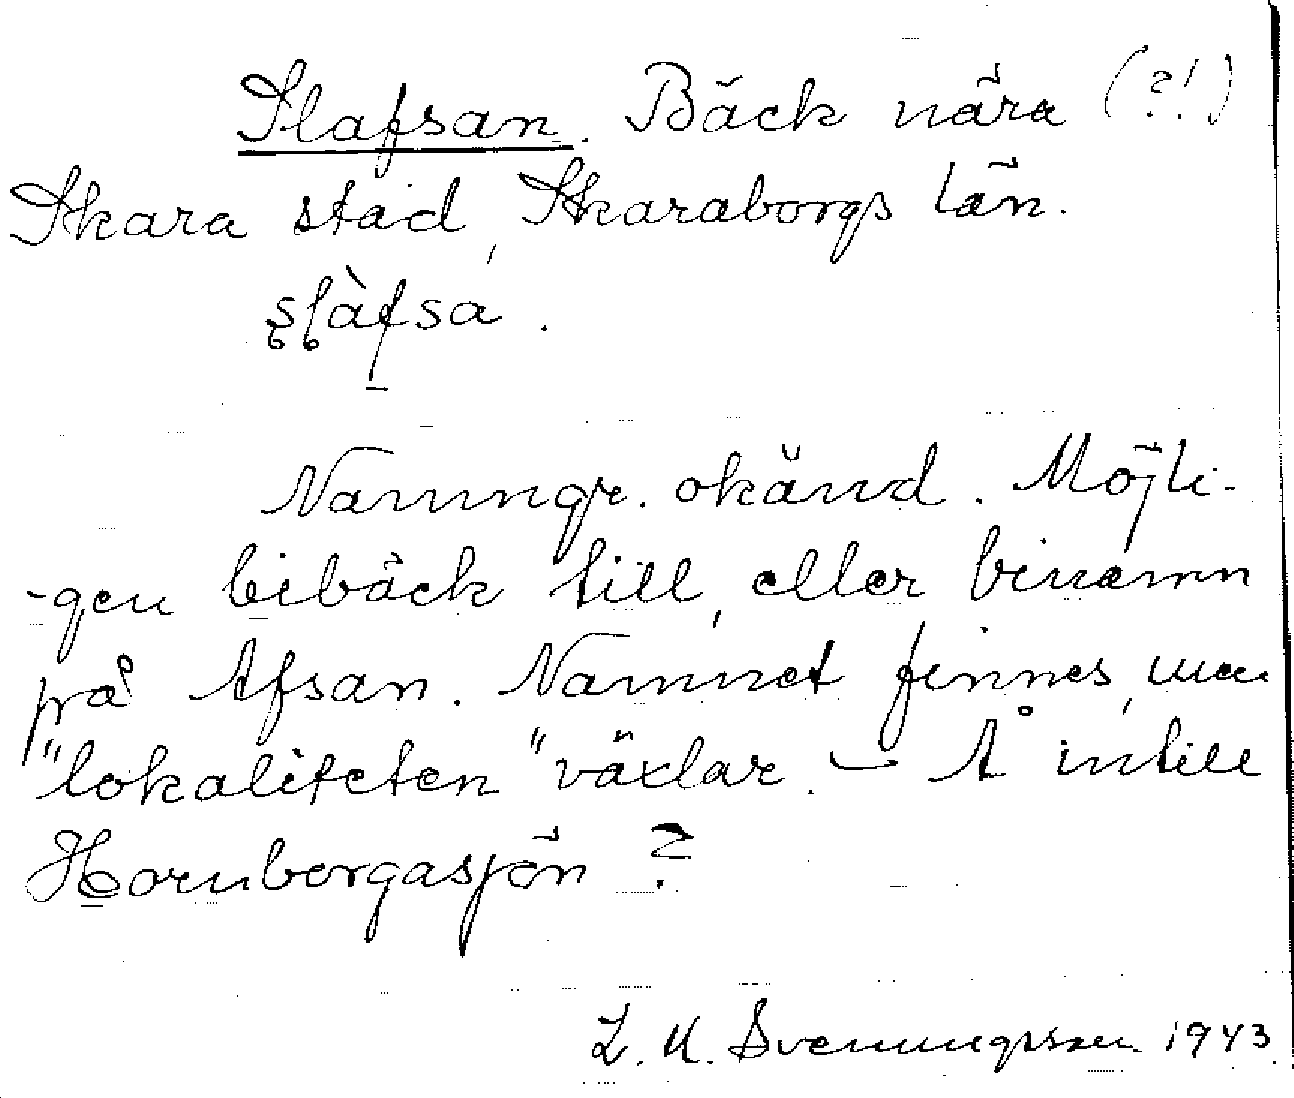 Slafsan. Bäck nära (?!)
Skara stad, Skaraborgs län.
s̥l̥àfsa.
Namngr. okänd. Möjli-
-gen bibäck till, eller binamn
på Afsan. Namnet finnes, men
"lokaliteten" växlar. – Å intill
Hornborgasjön ?
L. M. Svenungsson 1943